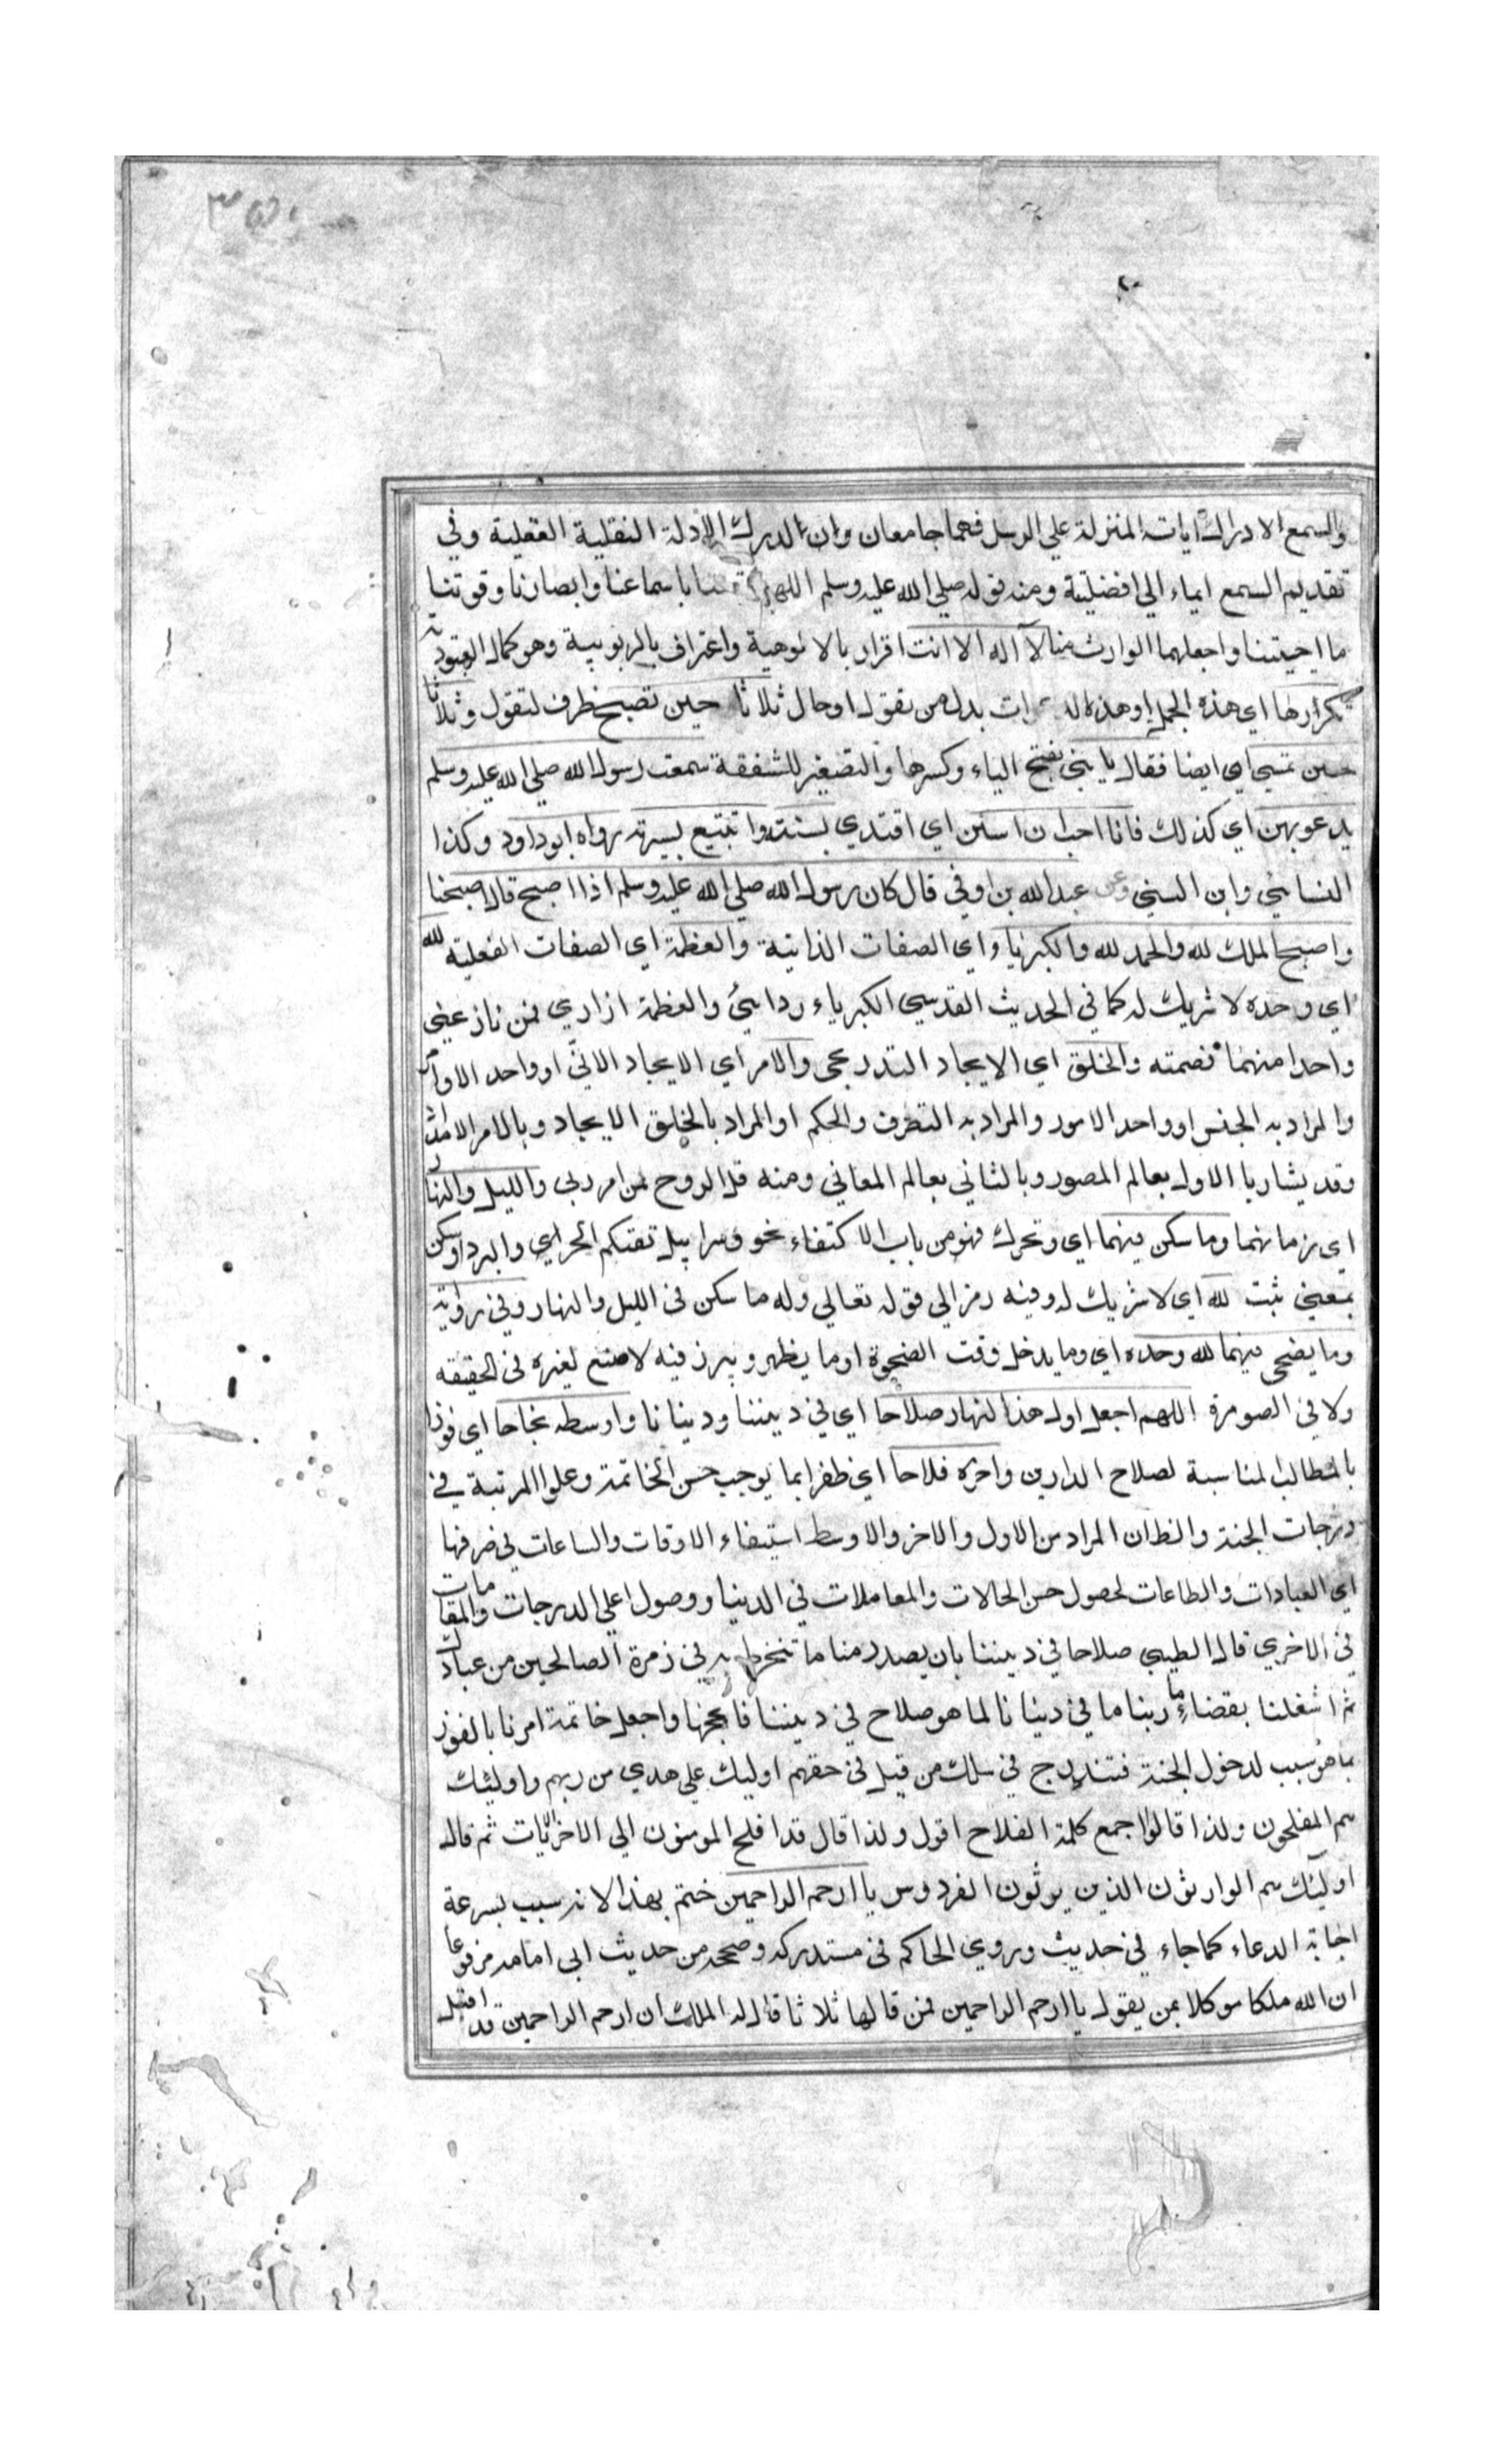 والسمع الادراك آيات المنزلة علي الرسل فهما جامعان وان لدرك الادلة النقلية العقلية وفي
تقديم السمع ايماء الي افضليتة ومنه قوله صلي الله عليه وسلم اللهم متعنا باسماعنا وابصارنا وقوتنا
ما احييتنا واجعلهما الوارث منا لآ آله الا انت اقرار بالالوهية واعتراف بالربوبية وهو كمال العبودية
تكرارها اي هذه الجمل او هذه الدعوات بدل من تقول او حال ثلاثا حين تصبح ظرف لتقول وثلاثا
حين تمسي اي ايضا فقال يا بني بفتح الياء وكسرها والتصغير للشفقة سمعت رسول الله صلي الله عليه وسلم
يدعو بهن اي كذلك فانا احب ان استن اي اقتدي بسنته واتتبع بسيرته رواه ابو داود وكذا
النسائي وابن السني وعن عبد الله بن اوفي قال كان رسول الله صلي الله عليه وسلم اذا اصبح قال اصبحنا
واصبح الملك لله والحمد لله والكبرياء اي الصفات الذاتية والعظمة اي الصفات الفعلية لله
اي وحده لا شريك له كما في الحديث القدسي الكبرياء ردائي والعظمة ازاري فمن نازعني
واحدا منهما قصمته والخلق اي الايجاد التدريجي والامر اي الايجاد الآنيّ او واحد الاوامر
والمراد به الجنس او واحد الامور والمراد به التصرف والحكم او المراد بالخلق الايجاد وبالامر
وقد يشار بالاول بعالم الصور وبالثاني بعالم المعاني ومنه قل الروح من امر ربي والليل والنهار
اي زمانهما وما سكن فيهما اي وتحرك فهو من باب الاكتفاء نحو وسرابيل تقيكم الحر اي والبرد او سكن
بمعني ثبت لله اي لا شريك له وفيه رمز الي قوله تعالي وله ما سكن في الليل والنهار وفي رواية
وما يضحي فيهما لله وحده اي وما يدخل وقت الضحوة او ما يظهر ويبرز فيه لا صنع لغيره في الحقيقه
ولا في الصورة اللهم اجعل اول هذا النهار صلاحا اي في ديننا ودنيانا واوسطه نجاحا اي فوزا
بالمطالب المناسبة لصلاح الدارين وآخره فلاحا اي ظفرا بما يوجب حسن الخاتمة وعلو المرتبة في
درجات الجنة والظ ان المراد من الاول والاخر والاوسط استيفاء الاوقات والساعات في صرفها
اي العبادات والطاعات لحصول حسن الحالات والمعاملات في الدنيا ووصول اعلي الدرجات والمقامات
في الاخري قال الطيبي صلاحا في ديننا بان يصدر منا ما ننخرط به في زمرة الصالحين من عبادك
ثم اشغلنا بقضاء ما ربنا ما في دنيانا لما هو صلاح في ديننا فانجحها واجعل خاتمة امرنا بالفوز
بما هو سبب لدخول الجنة فتندرج في سلك من قيل في حقهم اوليك علي هدي من ربهم واوليئك
هم المفلحون ولذا قالوا اجمع كلمة الفلاح اقول ولذا قال قد افلح المومنون الي الاخر الآيات ثم قال
اوليئك هم الوارثون الذين يرثون الفردوس يا ارحم الراحمين ختم بهذا لانه سبب لسرعة
اجابة الدعاء كما جاء في حديث وروي الحاكم في مستدركه وصححه من حديث ابي امامه مرفوعا
ان لله ملكا موكلا بمن يقول يا ارحم الراحمين فمن قالها ثلاثا قال له الملك ان ارحم الراحمين قد اقبل